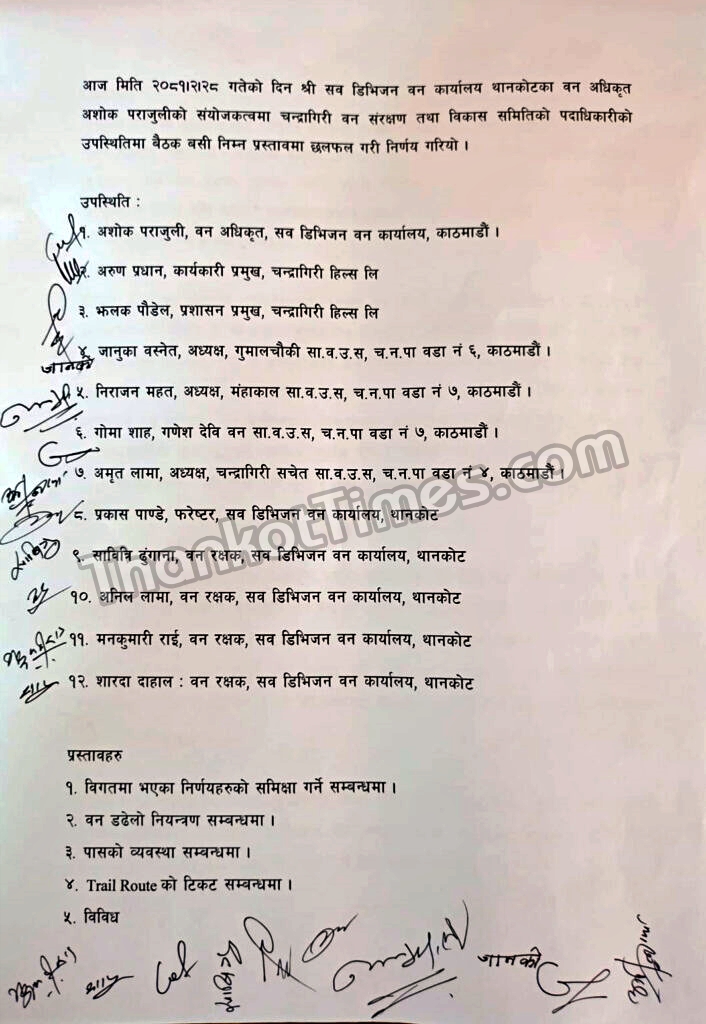 आज मिति २०८१।२।२८ गतेको दिन श्री सव डिभिजन वन कार्यालय थानकोटका वन अधिकृत
अशोक पराजुलीको संयोजकत्वमा चन्द्रागिरी वन संरक्षण तथा विकास समितिको पदाधिकारीको
उपस्थितिमा बैठक बसी निम्न प्रस्तावमा छलफल गरी निर्णय गरियो ।
उपस्थिति :
१. अशोक पराजुली, वन अधिकृत, सव डिभिजन वन कार्यालय, काठमाडौं ।
२. अरुण प्रधान, कार्यकारी प्रमुख, चन्द्रागिरी हिल्स लि
३. झलक पौडेल, प्रशासन प्रमुख, चन्द्रागिरी हिल्स लि
४. जानुका वस्नेत, अध्यक्ष, गुमालचौकी सा.व.उ.स, च.न.पा वडा नं ६, काठमाडौं ।
जानकी
५. निराजन महत, अध्यक्ष, मंहाकाल सा.व.उ.स, च.न.पा वडा नं ७, काठमाडौं ।
६. गोमा शाह, गणेश देवि वन सा.व.उ.स, च.न.पा वडा नं ७, काठमाडौं ।
७. अमृत लामा, अध्यक्ष, चन्द्रागिरी सचेत सा.व.उ.स, च.न.पा वडा नं ४, काठमाडौं ।
८. प्रकास पाण्डे, फरेष्टर, सव डिभिजन वन कार्यालय, थानकोट
९. सावित्रि ढुंगाना, वन रक्षक, सव डिभिजन वन कार्यालय, थानकोट
१०. अनिल लामा, वन रक्षक, सव डिभिजन वन कार्यालय, थानकोट
११. मनकुमारी राई, वन रक्षक, सव डिभिजन वन कार्यालय, थानकोट
१२. शारदा दाहाल : वन रक्षक, सव डिभिजन वन कार्यालय, थानकोट
ThankotTimes.com
प्रस्तावहरु
१. विगतमा भएका निर्णयहरुको समिक्षा गर्ने सम्बन्धमा ।
२. वन डढेलो नियन्त्रण सम्बन्धमा ।
३. पासको व्यवस्था सम्बन्धमा ।
४. Trail Route को टिकट सम्बन्धमा ।
५. विविध
जानकी